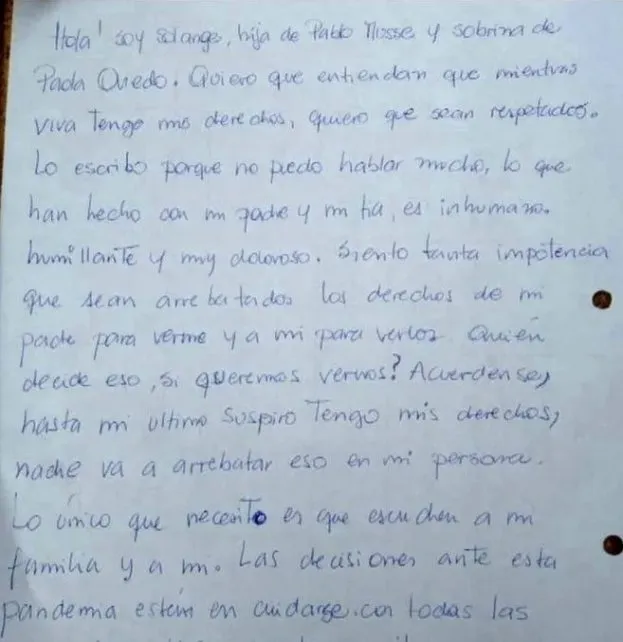 Hola! soy Solange, hija de Pablo Musse y sobrina de
Paola Oviedo. Quiero que entiendan que mientras
viva Tengo mis derechos, quiero que sean respetados.
Lo escribo porque no puedo hablar mucho, lo que
han hecho con mi padre y mi tia, es inhumano.
humillante y muy doloroso. Siento tanta impotencia
que sean arrebatados los derechos de mi
padre para verme y a mi para verlos Quien
decide eso, si queremos vernos? Acuerdense,
hasta mi ultimo suspiro Tengo mis derechos,
nadie va a arrebatar eso en mi persona.
Lo único que necesito es que escuchen a mi
familia y a mi. Las decisiones ante esta
pandemia están en cuidarse. con todas las